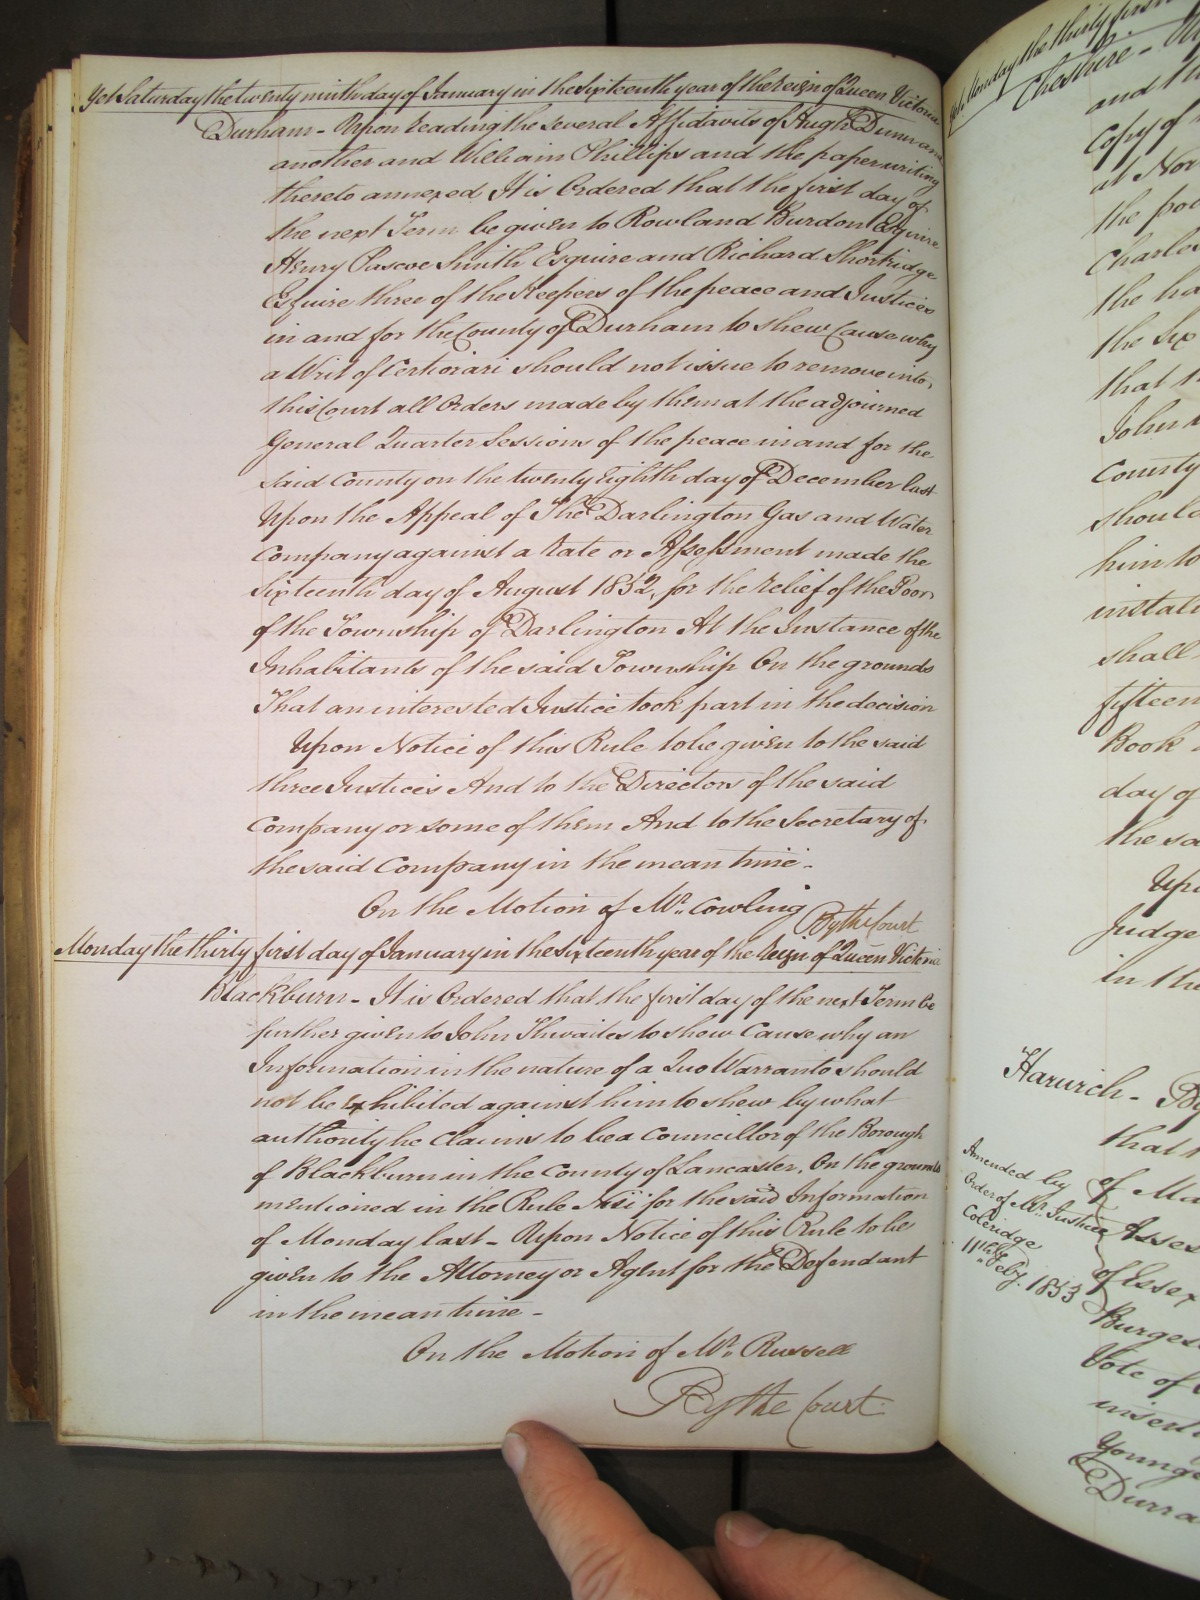 Yet Saturday the twenty ninth day of January in the Sixteenth year of the Reign of Queen Victoria
Durham - Upon reading the several Affidavits of Hugh Dunn and
another and William Phillips and the paper writing
thereto annexed It is Ordered that the first day of
the next Term be given to Rowland Burdon Esquire
Henry Pascoe Smith Esquire and Richard Shortridge
Esquire three of the Keepers of the peace and Justices
in and for the County of Durham to shew Cause why
a Writ of Certiorari should not issue to remove into
this Court all Orders made by them at the adjourned
General Quarter Sessions of the peace in and for the
said County on the twenty Eighth day of December last
Upon the Appeal of The Darlington Gas and Water
Company against a Rate or Assessment made the
Sixteenth day of August 1852, for the relief of the Poor
of the Township of Darlington At the Instance of the
Inhabitants of the said Township On the grounds
That an interested Justice took part in the decision
Upon Notice of this Rule to be given to the said
three Justices And to the Directors of the said
Company or some of them And to the Secretary of
the said Company in the mean time -
On the Motion of Mr. Cowling
By the Court
Monday the thirty first day of January in the Sixteenth year of the Reign of Queen Victoria
Blackburn - It is Ordered that the first day of the next Term be
further given to John Thwaites to shew Cause why an
Information in the nature of a Quo Warranto should
not be Exhibited against him to shew by what
authority he Claims to be a Councillor of the Borough
of Blackburn in the County of Lancaster. On the grounds
mentioned in the Rule Nisi for the said Information
of Monday last - Upon Notice of this Rule to be
given to the Attorney or Agent for the Defendant
in the mean time -
On the Motion of Mr. Russell
By the Court
Monday the thirty first
Cheshire -
and th
Copy of
at Nor
the
Charle
the ha
the Six
that t
John
County
should
him to
install
shall
fifteen
Book
day of
the sa
Upo
Judge
in the
Harwich - By
that
of Ma
Assess
of Essex
Burges
Vote of
insert
Younge
Durra
Amended by
Order of Mr. Justice
Coleridge
11th Feby. 1853